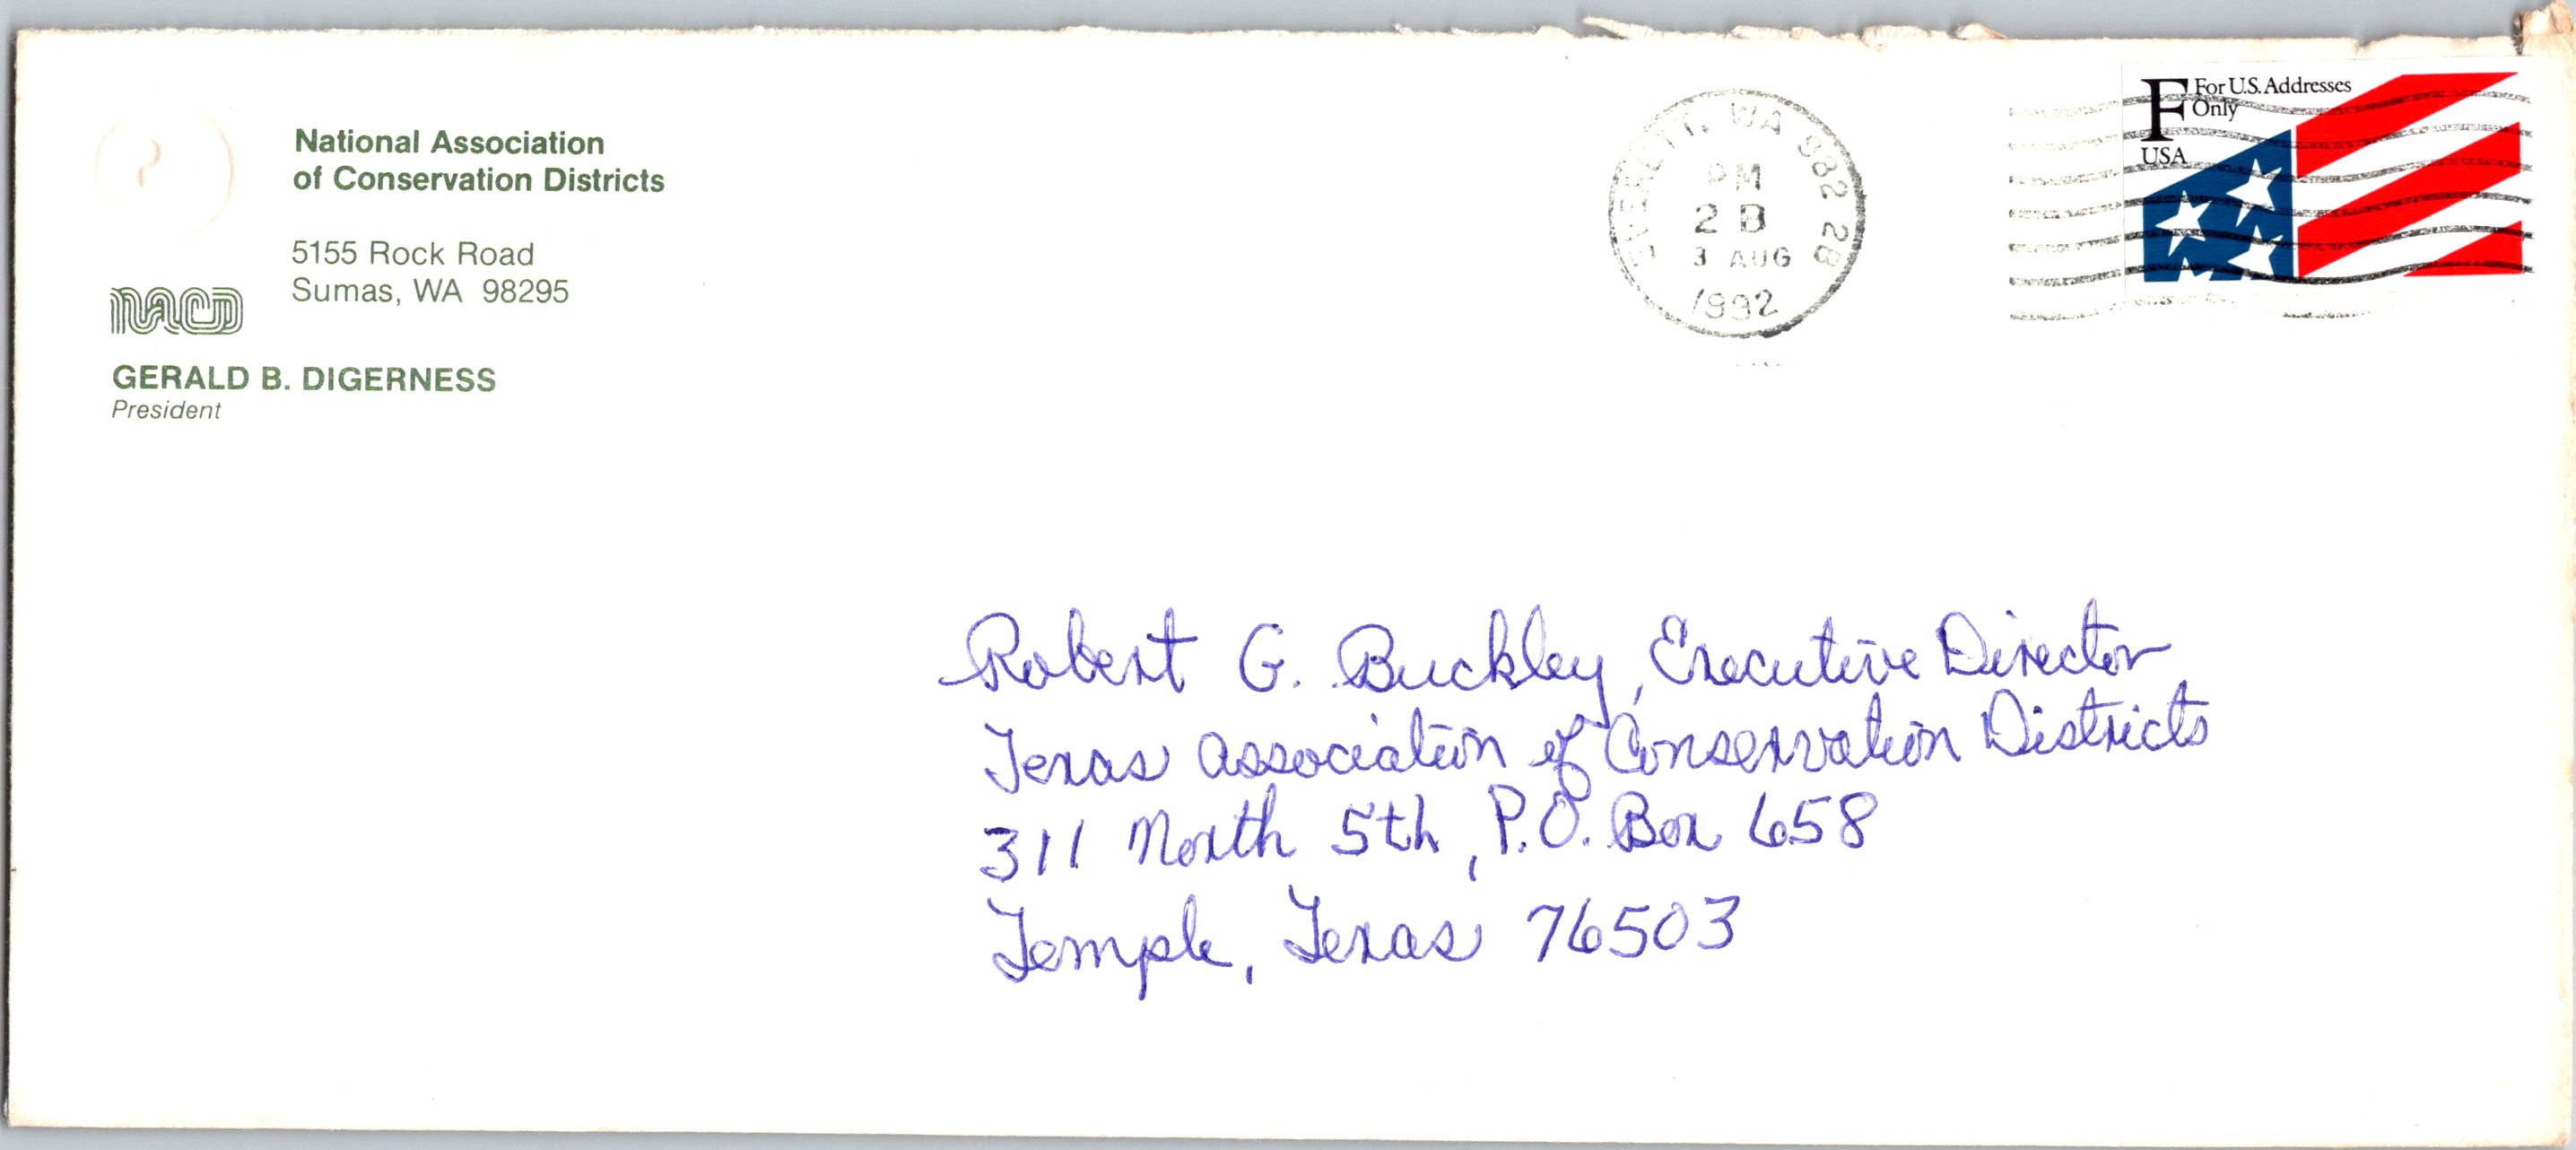 National Association
of Conservation Districts
5155 Rock Road
Sumas, WA 98295
NACD
GERALD B. DIGERNESS
President
EVERETT, WA 982 2B
PM
2 B
3 AUG
1992
F For U.S. Addresses
Only
USA
Robert G. Buckley, Executive Director
Texas Association of Conservation Districts
311 North 5th, P.O. Box 658
Temple, Texas 76503